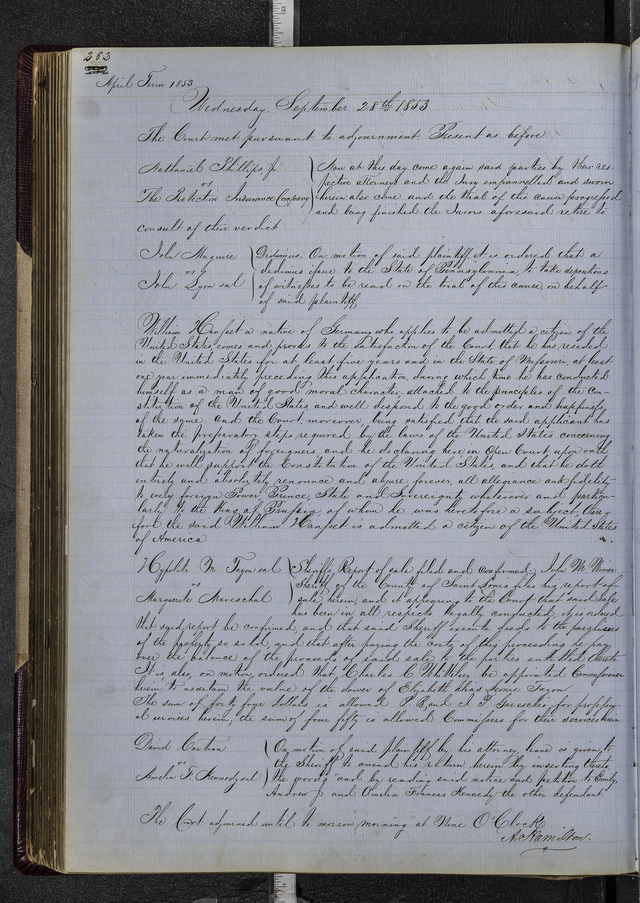 283
April Term 1853
Wednesday September 28th 1853
The Court met pursuant to adjournment Present as before
Nathaniel Phillips Jr
vs
The Protection Insurance Company
Now at this day come again said parties by their res-
pective attorneys and the Jury empannelled and sworn
herein also come and the trial of this cause progressed
and being finished the Jurors aforesaid retire to
consult of their verdict
John Maguire
vs
John Lyon et al
Dedimus. On motion of said plaintiff it is ordered that a
dedimus issue to the State of Pennsylvania to take depositions
of witnesses to be read on the trial of this cause on behalf
of said plaintiff
William Hanpet a native of Germany who applies to be admitted a citizen of the
United States, comes and proves to the satisfaction of the Court that he has resided
in the United States for at least five years and in the State of Missouri, at least
one year immediately preceding this application, during which time he has conducted
himself as a man of good moral character, attached to the principles of the Con-
stitution of the United States and well disposed to the good order and happiness
of the same. And the Court, moreover being satisfied that the said applicant has
taken the preparatory steps required by the laws of the United States concerning
the naturalization of foreigners, and he declaring here in Open Court upon oath
that he will support the Constitution of the United States, and that he doth
entirely and absolutely renounce and abjure forever all allegiance and fidelity
to every foreign Power, Prince, State and Sovereignty whatsoever and particu-
larly to the King of Prussia of whom he was heretofore a subject, there
fore the said William Hanpet is admitted a citizen of the United States
of America.
Hypolite M et al
vs
Marguerite Mareschal
Sheriffs Report of sale filed and confirmed, John M. Wimer
Sheriff of the County of Saint Louis files his report of
sale herein, and it appearing to the Court that said sale
has been in all respects legally conducted, it is ordered
that said report be confirmed, and that said Sheriff execute deeds to the purchasers
of the property so sold, and that after paying the costs of this proceeding he pay
over the balance of the proceeds of said sale to the parties entitled thereto
It is, also, on motion, ordered that Charles C. Whittelsey be appointed Commissioner
herein to ascertain the value of the dower of Elizabeth
The sum of forty four dollars is allowed P Paul & F Garesche, for profession-
al services herein, the sum of four fifty is allowed Commissers for their services herein
David
vs
Amelia F. Kennedy et al
On motion of said plaintiff by his attorney, leave is given to
the Sheriff to amend his return herein by inserting therein
the words and by reading said notice and petition to Emily
Andrew Jr and Amelia Frances Kennedy the other defendant
The Court adjourned until to morrow morning at Nine O'Clock
A. Hamilton.